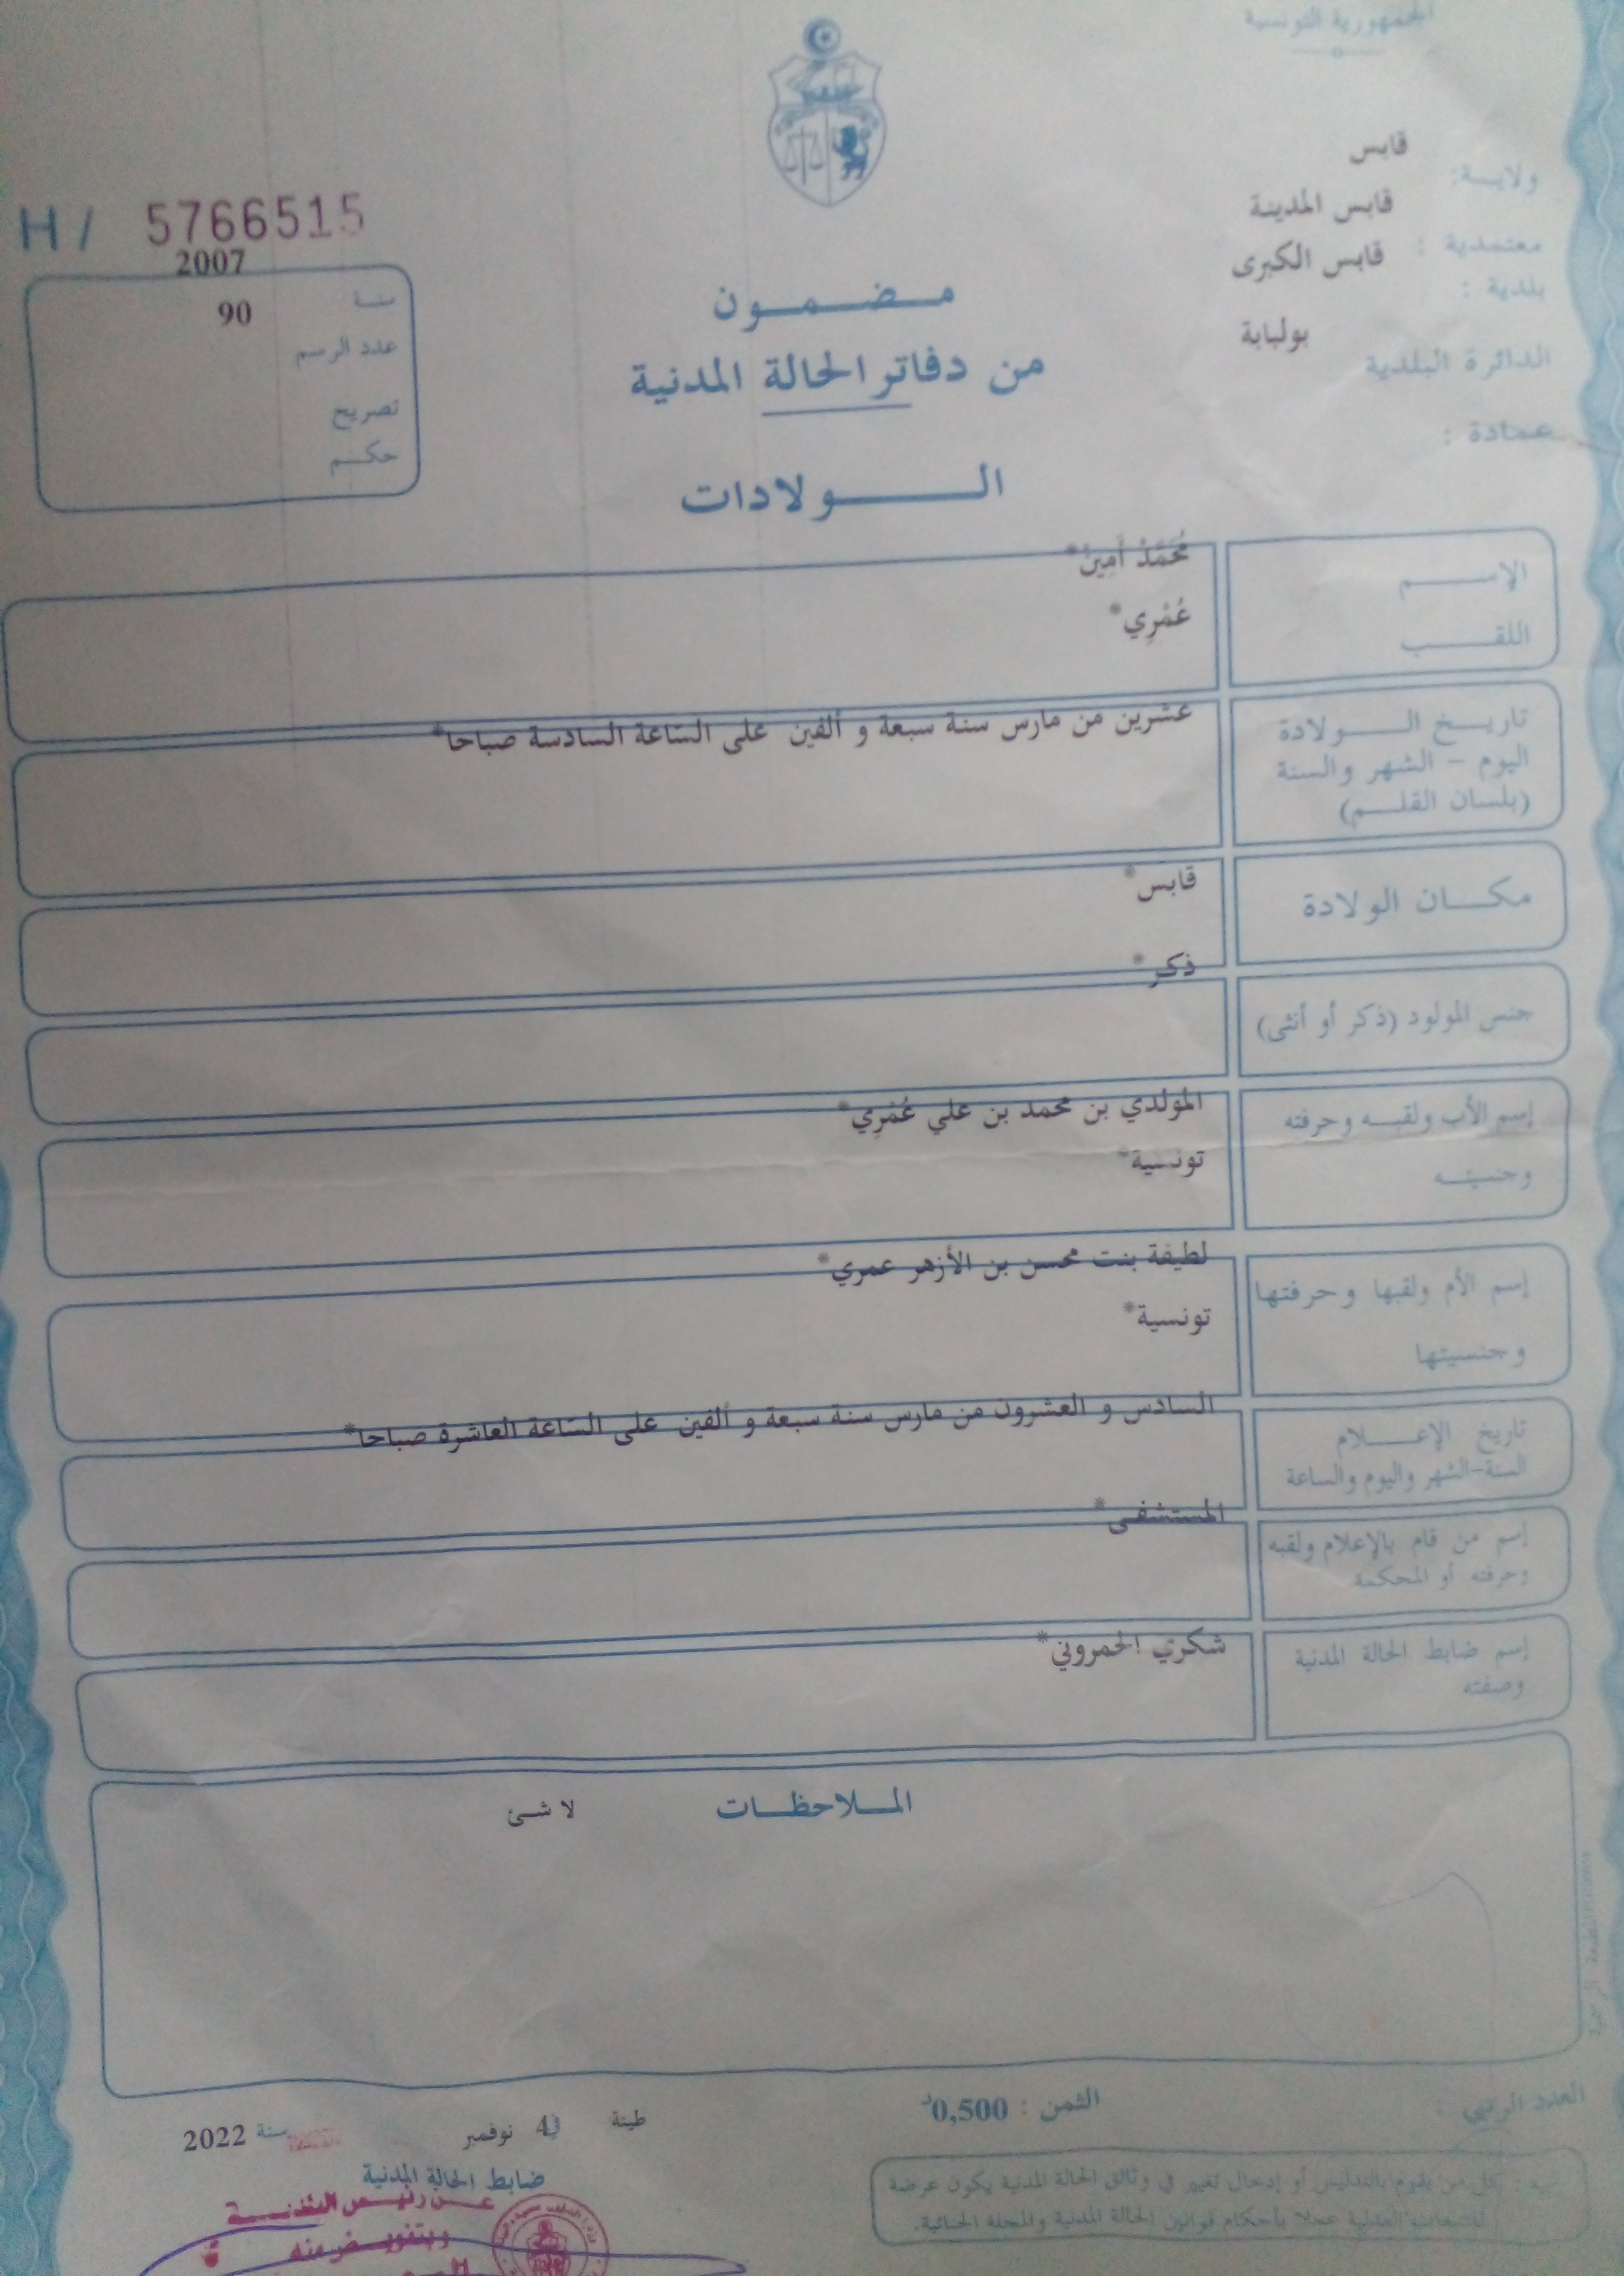 الجمهورية التونسية
ولايـــة: قابس
معتمدية : قابس المدينة
بلدية : قابس الكبرى
الدائرة البلدية بولبابة
عمادة :
H / 5766515
2007
سنة
90
عدد الرسم
تصريح
حكم
مـضـمـون
من دفاتر الحالة المدنية
الـولادات
الإسـم
مُحَمَّدْ أَمِينْ*
اللقـب
عُمْرِي*
تاريـخ الـولادة
اليوم - الشهر والسنة
(بلسان القلـم)
عشرين من مارس سنة سبعة و ألفين على السّاعة السادسة صباحا*
مكـان الولادة
قابس*
جنس المولود (ذكر أو أنثى)
ذكر*
إسم الأب ولقبـه وحرفته
وجنسيتـه
المولدي بن محمد بن علي عُمْرِي*
تونسية*
إسم الأم ولقبها وحرفتها
وجنسيتها
لطيفة بنت محسن بن الأزهر عمري*
تونسية*
تاريخ الإعـلام
السنة-الشهر واليوم والساعة
السادس و العشرون من مارس سنة سبعة و ألفين على السّاعة العاشرة صباحا*
إسم من قام بالإعلام ولقبه
وحرفته أو المحكمة
المستشفى*
إسم ضابط الحالة المدنية
وصفته
شكري الحمروني*
المـلاحظـات
لا شئ
العدد الرتبي :
الثمن : 0,500د
طينة في 4 نوفمبر سنة 2022
ضابط الحالة المدنية
عـن رئيـس البلديـة
وبتفويـض منه
كل من يقوم بالتدليس أو إدخال تغيير في وثائق الحالة المدنية يكون عرضة
للتتبعات العدلية عملا بأحكام قوانين الحالة المدنية والمجلة الجنائية.